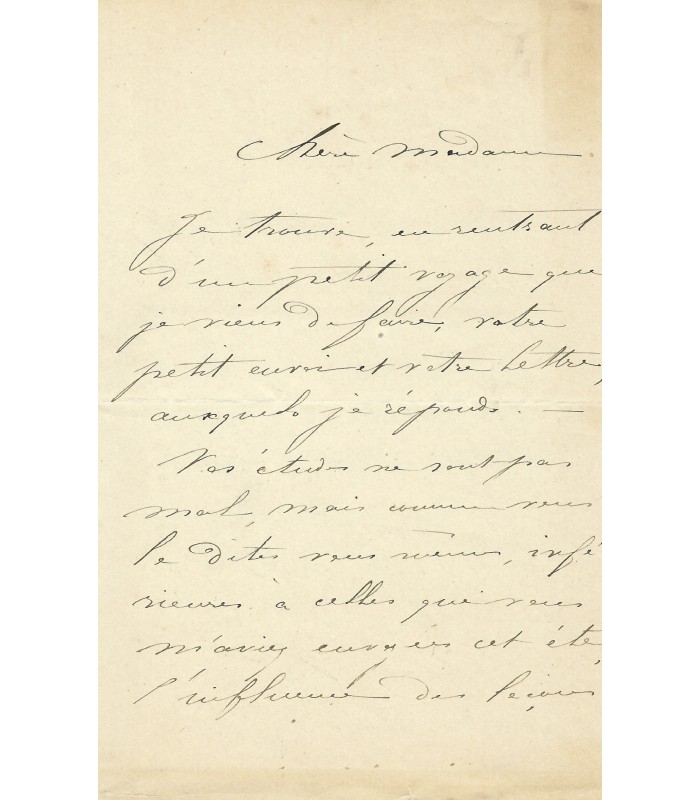 Chère Madame
Je trouve, en rentrant
d'un petit voyage que
je viens de faire, votre
petit envoi et votre lettre,
auxquels je réponds. —
Vos études ne sont pas
mal, mais comme vous
le dites vous même, infé
rieures à celles que vous
m'aviez envoyées cet été,
l'influence des leçons